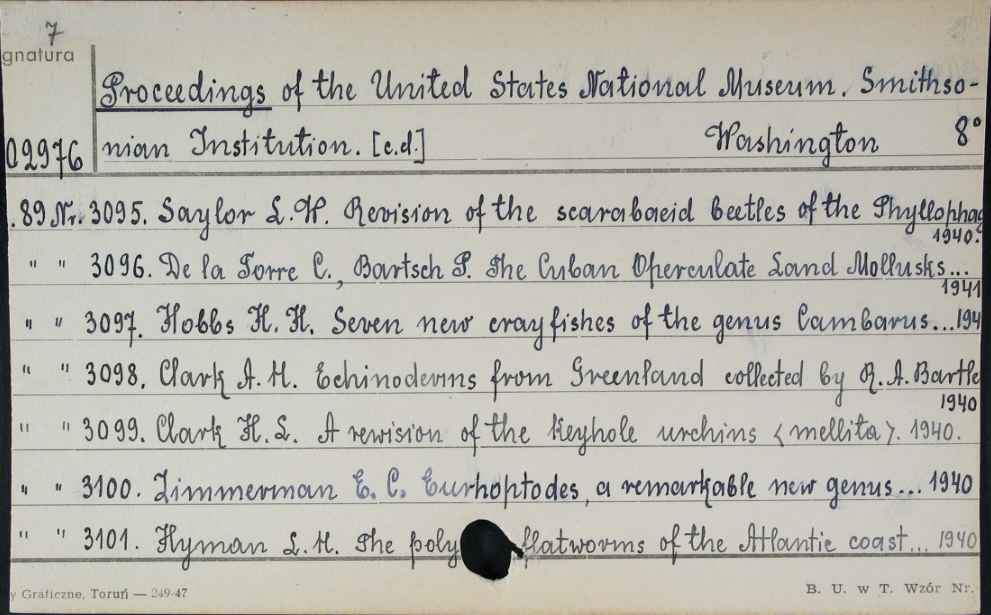 7
gnatura
Proceedings of the United States National Museum. Smithso-
02976 nian Institution. [c.d.] Washington 8°
. 89 Nr. 3095. Saylor L. W. Revision of the scarabaeid beetles of the Phyllophag
1940.
" " 3096. De la Torre C., Bartsch P. The Cuban Operculate Land Mollusks...
1941
" " 3097. Hobbs H. H. Seven new crayfishes of the genus Cambarus...194
" " 3098. Clark A. H. Echinoderms from Greenland collected by R. A. Bartle
1940
" " 3099. Clark H. L. A rewision of the keyhole urchins <mellita>. 1940.
" " 3100. Zimmerman E. C. Eurhoptodes, a remarkable new genus... 1940
" " 3101. Hyman L. H. The poly flatworms of the Atlantic coast... 1940
y Graficzne, Toruń — 249-47 B. U. w T. Wzór Nr.